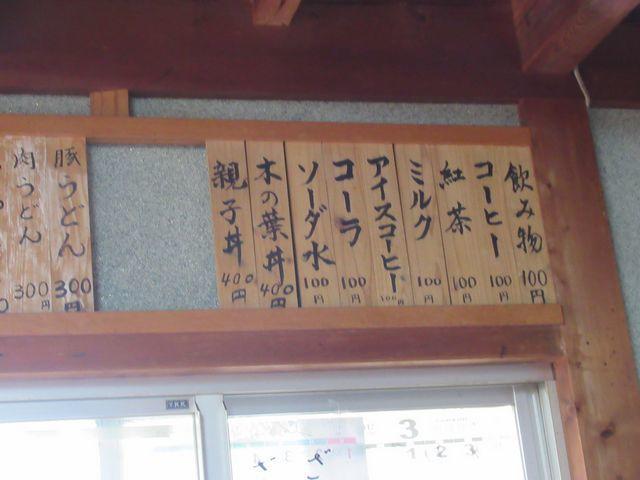 飲み物 100円
コーヒー 100円
紅茶 100円
ミルク 100円
アイスコーヒー 100円
コーラ 100円
ソーダ水 100円
木の葉丼 400円
親子丼 400円
豚うどん 300円
肉うどん 300円
YKK
3
1 2 3